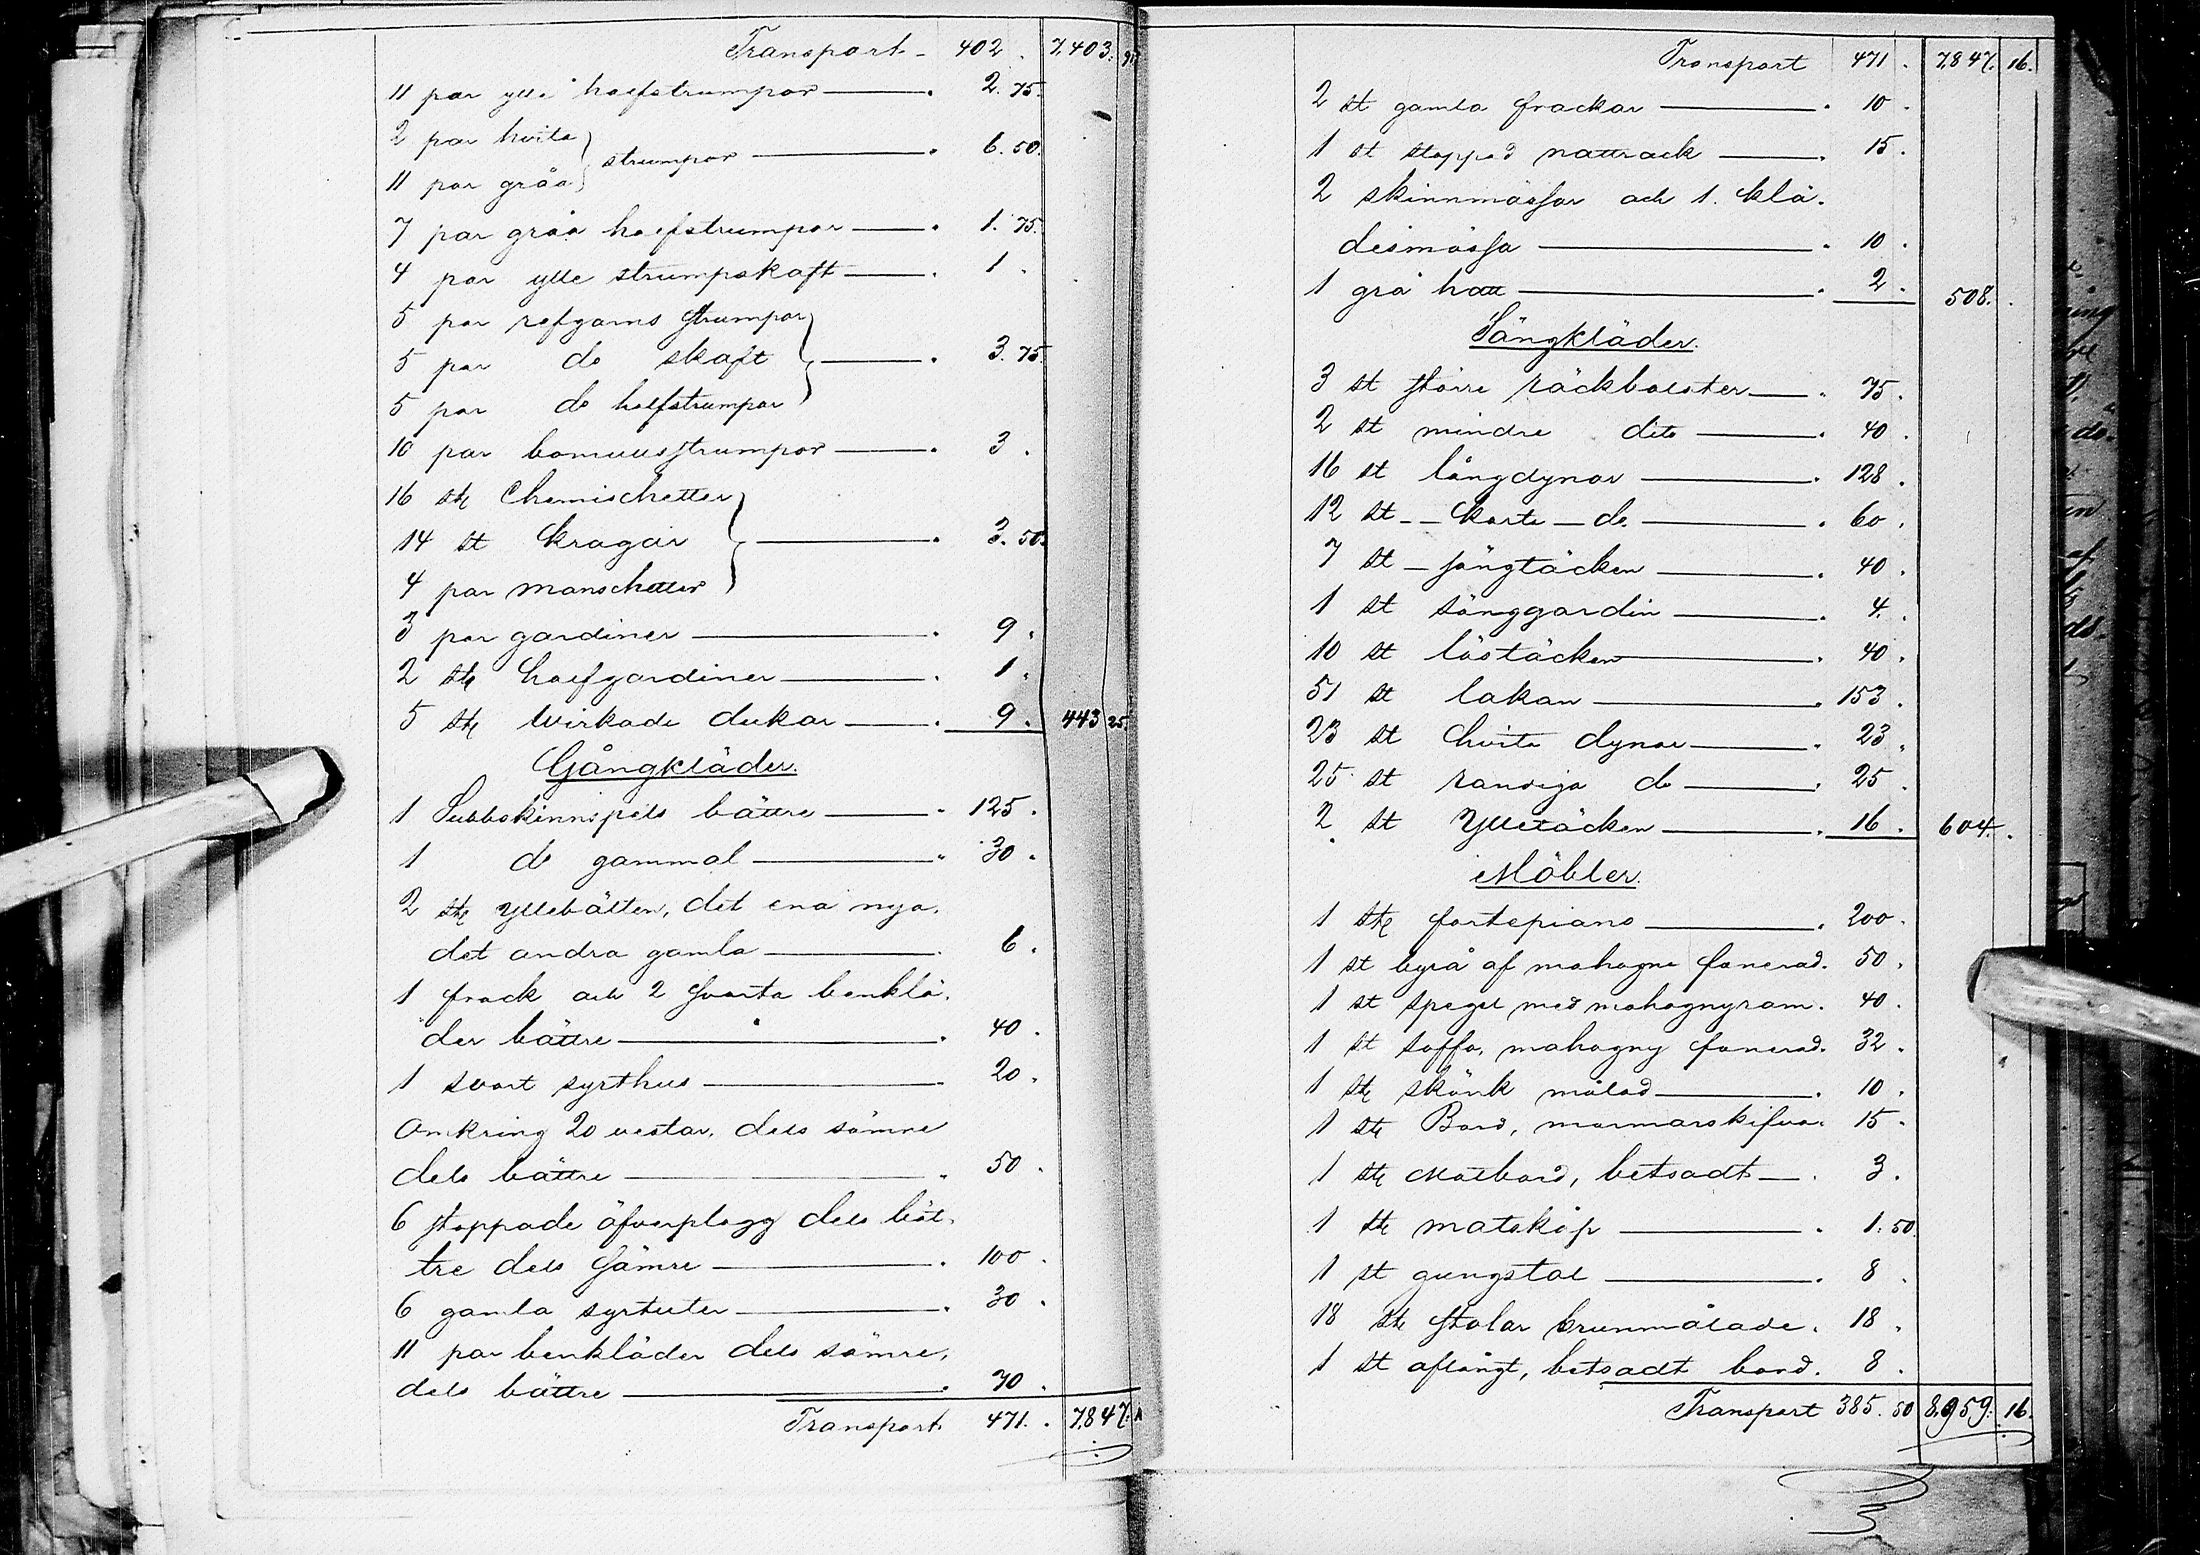 Transport 402. 7,403. 91
11 par ylle halfstrumpor 2.75.
2 par hvita
strumpor 6.50.
11 par gråa
7 par gråa halfstrumpor 1.75.
4 par ylle strumpskaft 1.
5 par refgarns strumpor
5 par do skaft 3.75.
5 par do halfstrumpor
10 par bomullsstrumpor 3.
16 stk Chemischetter
14 st kragar 3.50.
4 par manschetter
3 par gardiner 9.
2 stk halfgardiner 1.
5 stk wirkade dukar 9. 443 25.
Gångkläder.
1 Subbskinnspels bättre 125.
1 do gammal 30.
2 stk yllebälten, det ena nya,
det andra gamla 6.
1 frack och 2 svarta benklä-
der bättre 40.
1 svart syrthus 20.
Omkring 20 vestar, dels sämre
dels bättre 50.
6 stoppade öfverplagg dels bät-
tre dels sämre 100.
6 gamla syrtuter 30.
11 par benkläder dels sämre,
dels bättre 70.
Transport 471. 7,847.
Transport 471. 7,847. 16.
2 st gamla frackar 10.
1 st stoppad nattrack 15.
2 skinnmössor och 1. klä-
desmössa 10.
1 grå hatt 2. 508.
Sängkläder.
3 st större räckbolster 75.
2 st mindre dito 40.
16 st långdynor 128.
12 st korta do 60.
7 st sängtäcken 40.
1 st sänggardin 4.
10 st löstäcken 40.
51 st lakan 153.
23 st hvita dynor 23.
25 st randiga do 25.
2 st Ylletäcken 16. 604.
Möbler.
1 stk fortepiano 200.
1 st byrå af mahogne fanerad. 50.
1 st spegel med mahognyram. 40.
1 st soffa, mahogny fanerad. 32.
1 stk skänk målad 10.
1 stk Bord, marmorskifva. 15.
1 stk Matbord, betsadt 3.
1 stk matskåp 1.50.
1 st gungstol 8.
18 stk stolar brunmålade. 18.
1 st aflångt, betsadt bord. 8.
Transport 385.50 8,959. 16.